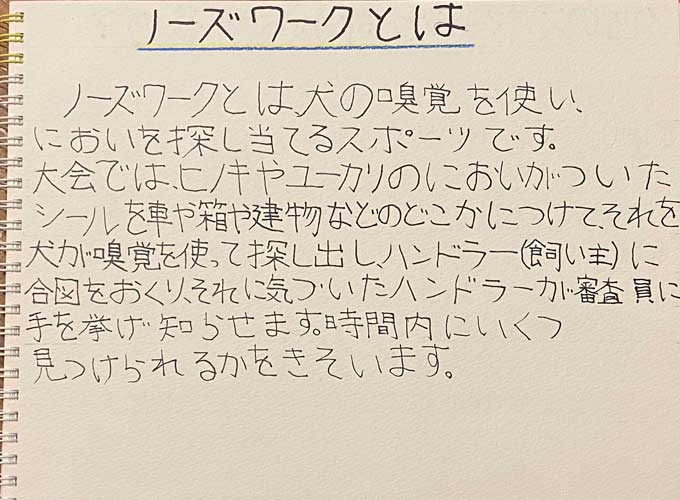 ノーズワークとは
ノーズワークとは、犬の嗅覚を使い、
においを探し当てるスポーツです。
大会では、ヒノキやユーカリのにおいがついた
シールを車や箱や建物などのどこかにつけて、それを
犬が嗅覚を使って探し出し、ハンドラー(飼い主)に
合図をおくり、それに気づいたハンドラーが審査員に
手を挙げ知らせます。時間内にいくつ
見つけられるかをきそいます。